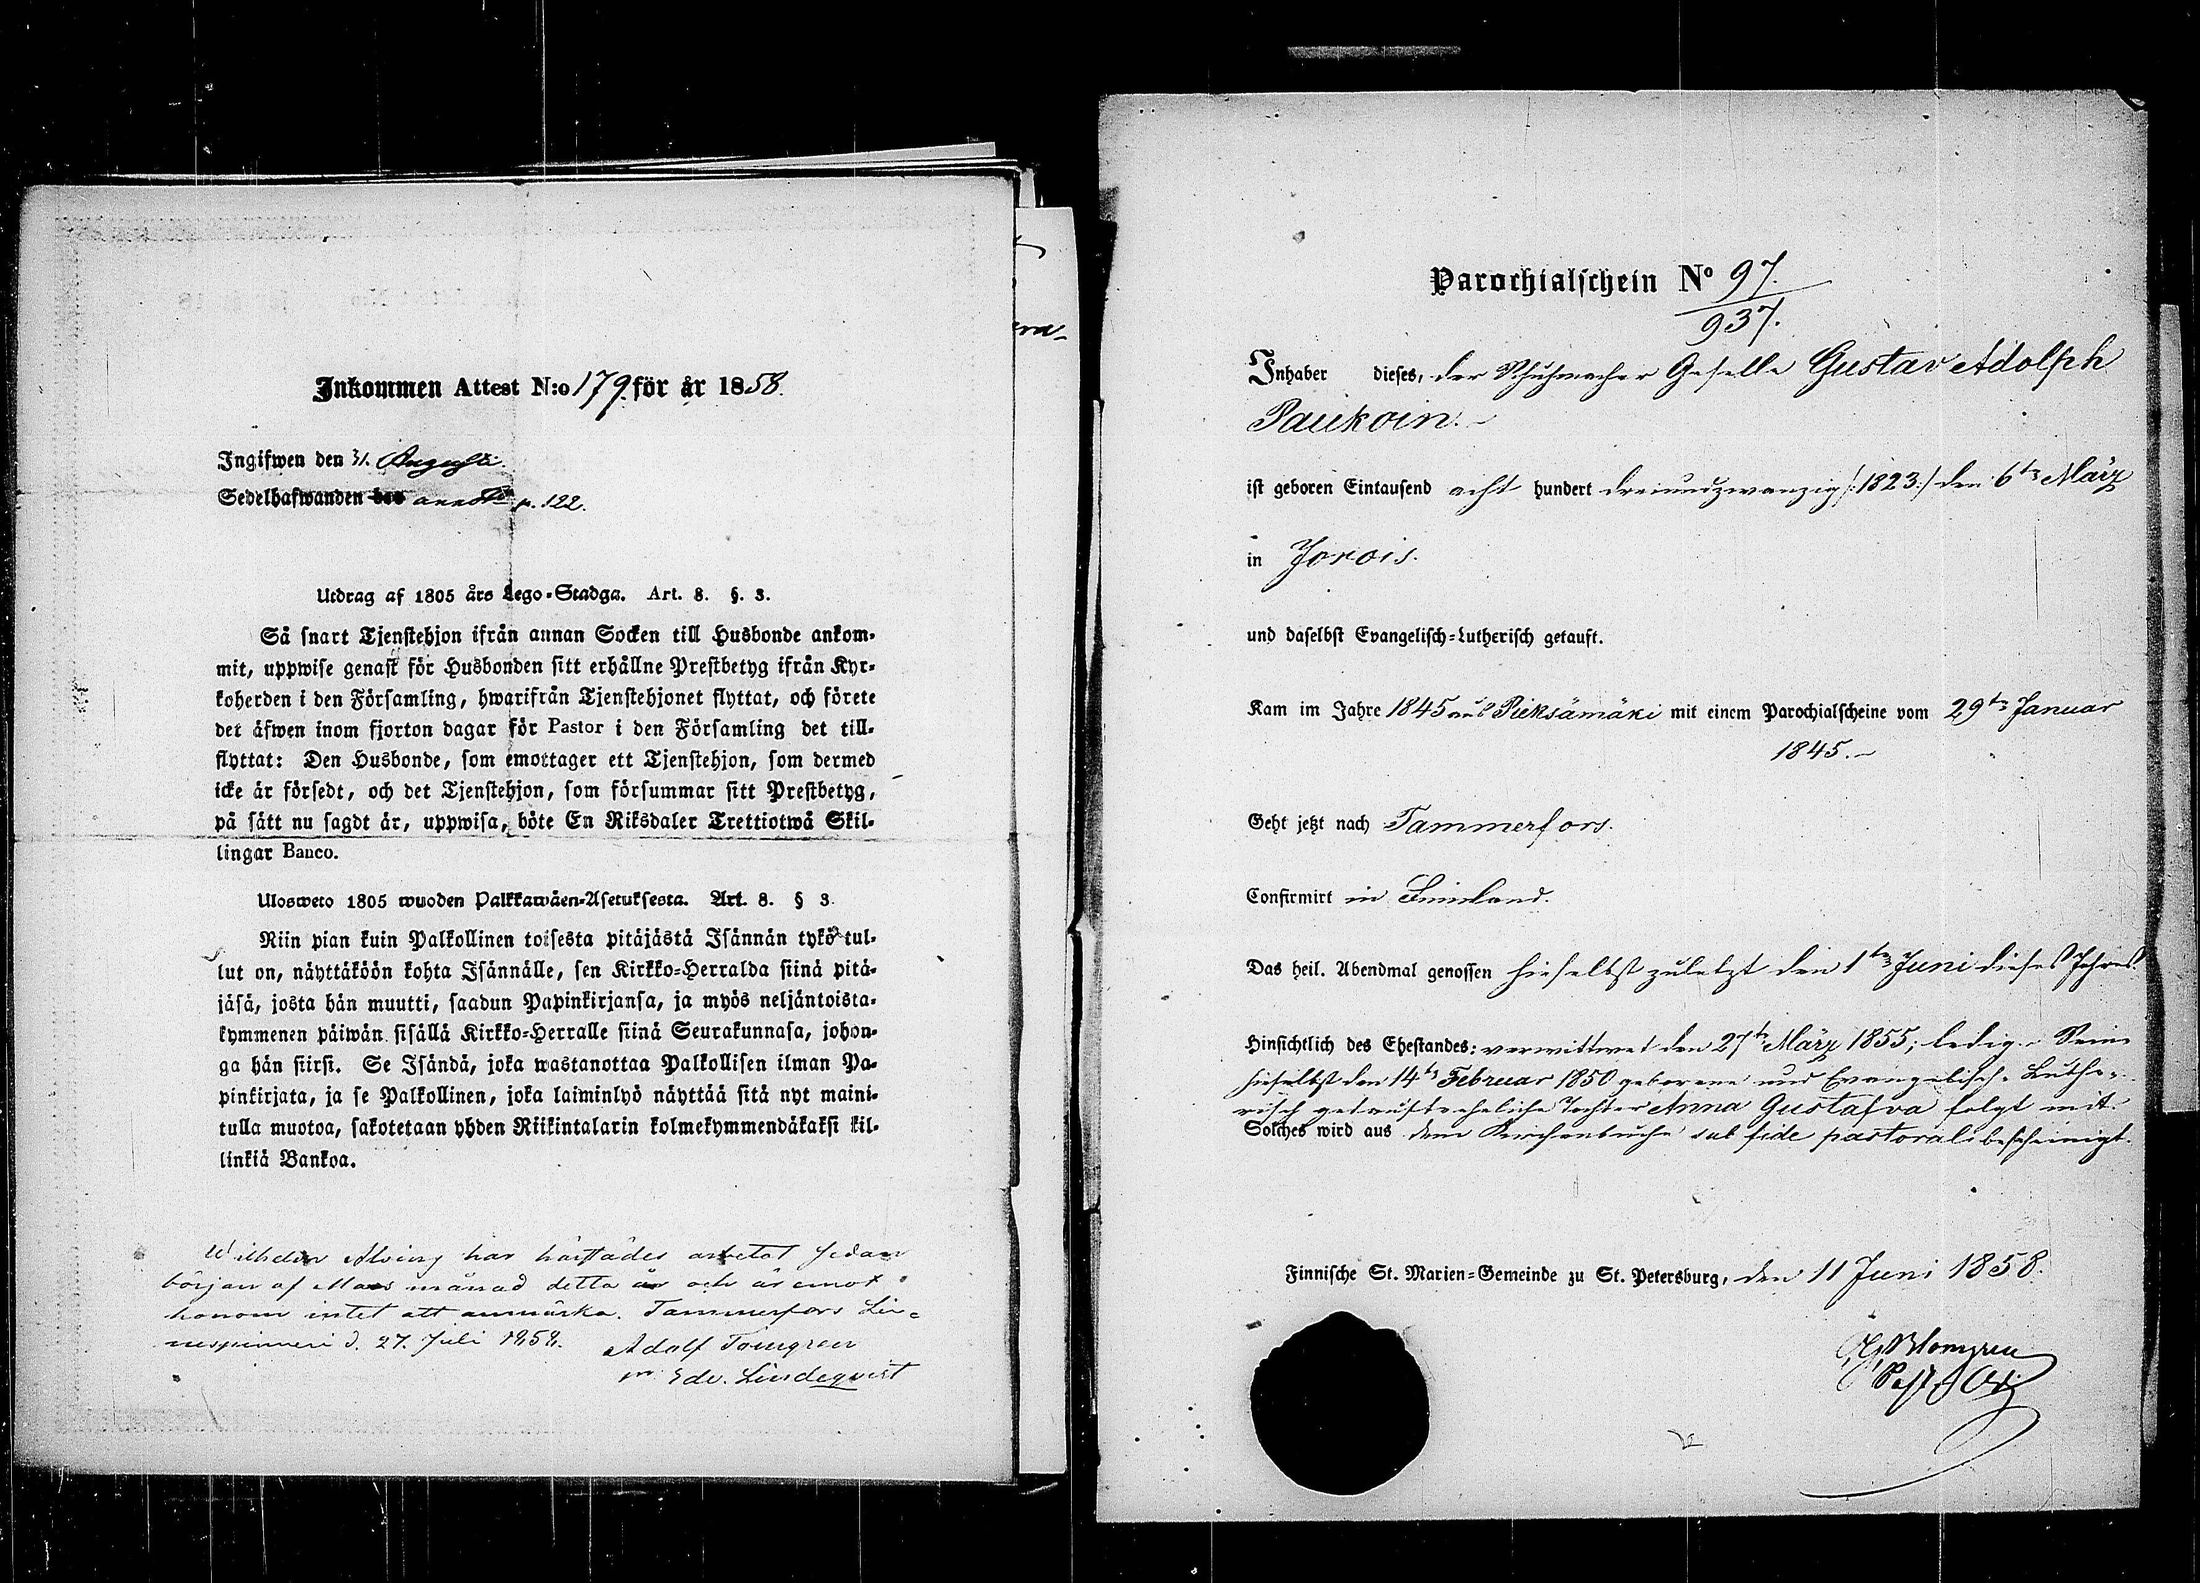 Inkommen Attest N:o 179. för år 1858.
Ingifwen den 31. Augusti.
Sedelhafwanden p. 122.
Utdrag af 1805 års Lego-Stadga. Art. 8. §. 3.
Så snart Tjenstehjon ifrån annan Socken till Husbonde ankom-
mit, uppwise genast för Husbonden sitt erhållne Prestbetyg ifrån Kyr-
koherden i den Församling, hwarifrån Tjenstehjonet flyttat, och förete
det äfwen inom fjorton dagar för Pastor i den Församling det till-
flyttat: Den Husbonde, som emottager ett Tjenstehjon, som dermed
icke är försedt, och det Tjenstehjon, som försummar sitt Prestbetyg,
på sätt nu sagdt är, uppwisa, böte En Riksdaler Trettiotwå Skil-
lingar Banco.
Ulosweto 1805 wuoden Palkkawäen-Asetuksesta. Art. 8. § 3.
Niin pian kuin Palkollinen toisesta pitäjästä Isännän tykö tul-
lut on, näyttäköön kohta Isännälle, sen Kirkko-Herralda siinä pitä-
jäsä, josta hän muutti, saadun Papinkirjansa, ja myös neljäntoista-
kymmenen päiwän sisällä Kirkko-Herralle siinä Seurakunnasa, johon-
ga hän siirsi. Se Isändä, joka wastanottaa Palkollisen ilman Pa-
pinkirjata, ja se Palkollinen, joka laiminlyö näyttää sitä nyt maini-
tulla muotoa, sakotetaan yhden Riikintalarin kolmekymmendäkaksi kil-
linkiä Bankoa.
Wilhelm Alving har härstädes arbetat sedan
början af Mars månad detta år och är emot
honom intet att anmärka. Tammerfors Lin-
nespinneri d. 27. Juli 1858. Adolf Törngren
Edv. Lindeqvist
Parochialschein No 97.
937.
Inhaber dieses, der Schuhmacher Geselle Gustav Adolph
Paukoin.
ist geboren Eintausend acht hundert dreiundzwanzig /:1823:/ den 6ten März
in Jorois.
und daselbst Evangelisch-Lutherisch getauft.
Kam im Jahre 1845 aus Pieksämäki mit einem Parochialscheine vom 29ten Januar
1845.
Geht jetzt nach Tammerfors.
Confirmirt in Finnland.
Das heil. Abendmal genossen hieselbst zuletzt den 1ten Juni dieses Jahres.
Hinsichtlich des Ehestandes: verwittwet den 27ten März 1855; ledig. Seine
hieselbst den 14ten Februar 1850 geborene und Evangelisch-Luthe-
risch getaufte eheliche Tochter Anna Gustafva folgt mit.
Solches wird aus dem Kirchenbuche sub fide pastorali bescheinigt.
Finnische St. Marien-Gemeinde zu St. Petersburg, den 11 Juni 1858.
Blomgren